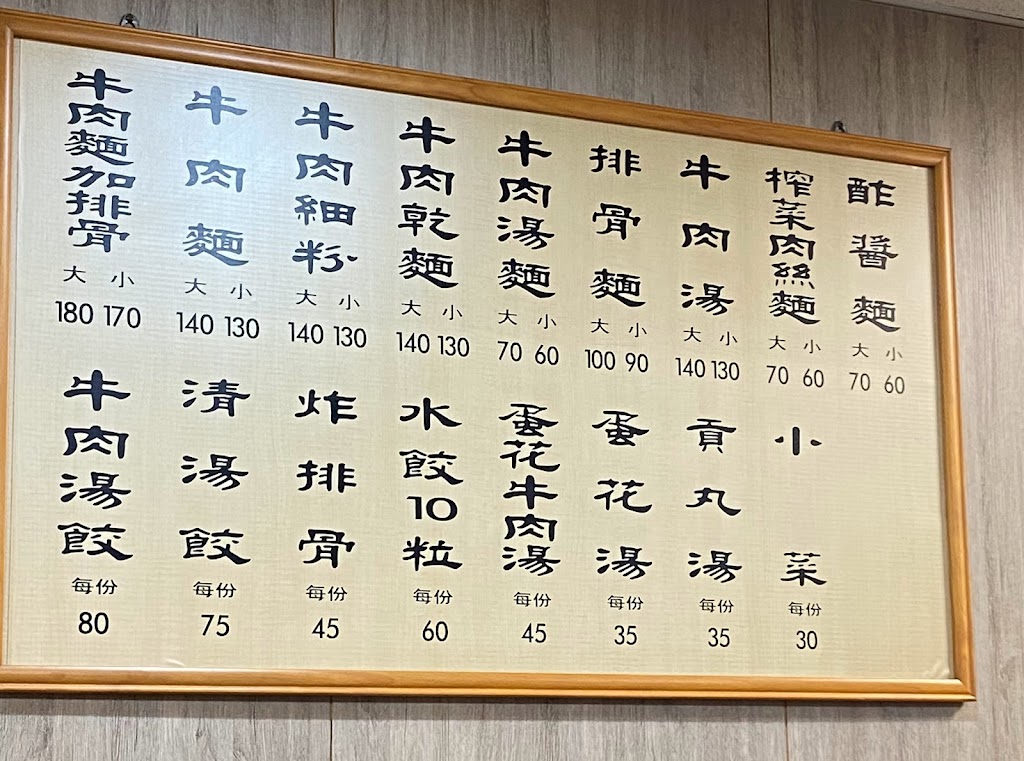 酢醬麵
大 小
70 60
榨菜肉絲麵
大 小
70 60
牛肉湯
大 小
140 130
排骨麵
大 小
100 90
牛肉湯麵
大 小
70 60
牛肉乾麵
大 小
140 130
牛肉細粉
大 小
140 130
牛肉麵
大 小
140 130
牛肉麵加排骨
大 小
180 170
小菜
每份
30
貢丸湯
每份
35
蛋花湯
每份
35
蛋花牛肉湯
每份
45
水餃10粒
每份
60
炸排骨
每份
45
清湯餃
每份
75
牛肉湯餃
每份
80